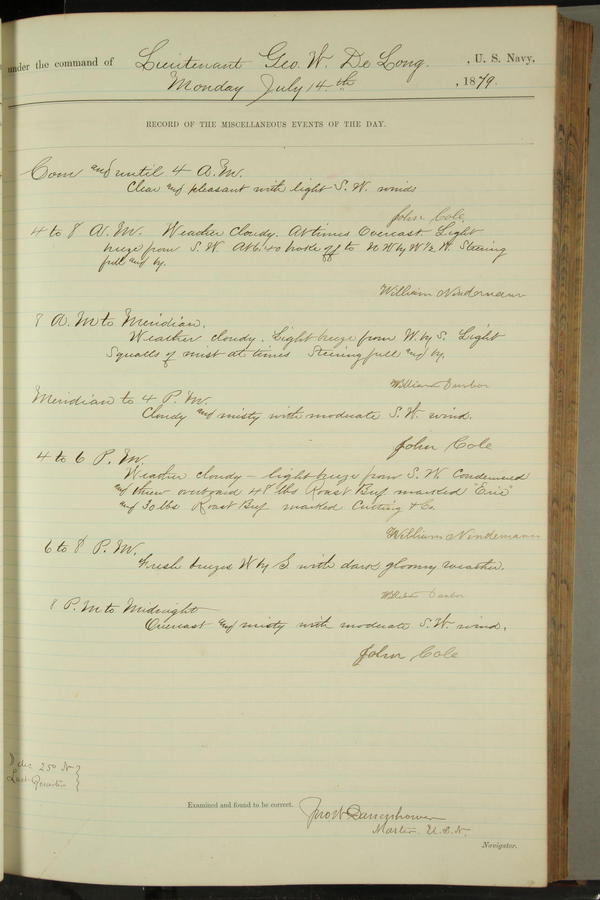 under the command of Lieutenant Geo. W. De Long. , U. S. Navy,
Monday July 14th , 1879.
RECORD OF THE MISCELLANEOUS EVENTS OF THE DAY.
Com and until 4 A.M.
Clear and pleasant with light S.W. winds
John Cole,
4 to 8 A.M. Weather Cloudy. At times Overcast Light
breeze from S.W. At 6.40 broke off to N W by W 1/2 W. Steering
full and by.
William Nindemann
8 A.M to Meridian.
Weather cloudy. Light breeze from W. by S. Light
Squalls of mist at times Steering full and by.
William Dunbar
Meridian to 4 P.M.
Cloudy and misty with moderate S.W. wind.
John Cole
4 to 6 P.M.
Weather cloudy - light breeze from S.W. Condemned
and threw overboard 48 lbs Roast Beef marked "Erie"
and 30 lbs Roast Beef marked Cutting & Co.
William Nindemann
6 to 8 P.M.
Fresh breeze W by S with dark gloomy weather.
William Dunbar
8 P.M to Midnight
Overcast and misty with moderate S.W. wind.
John Cole
dec 25° N
Last Quarter
Examined and found to be correct. Jno W Danenhower
Master. U.S.N.
Navigator.